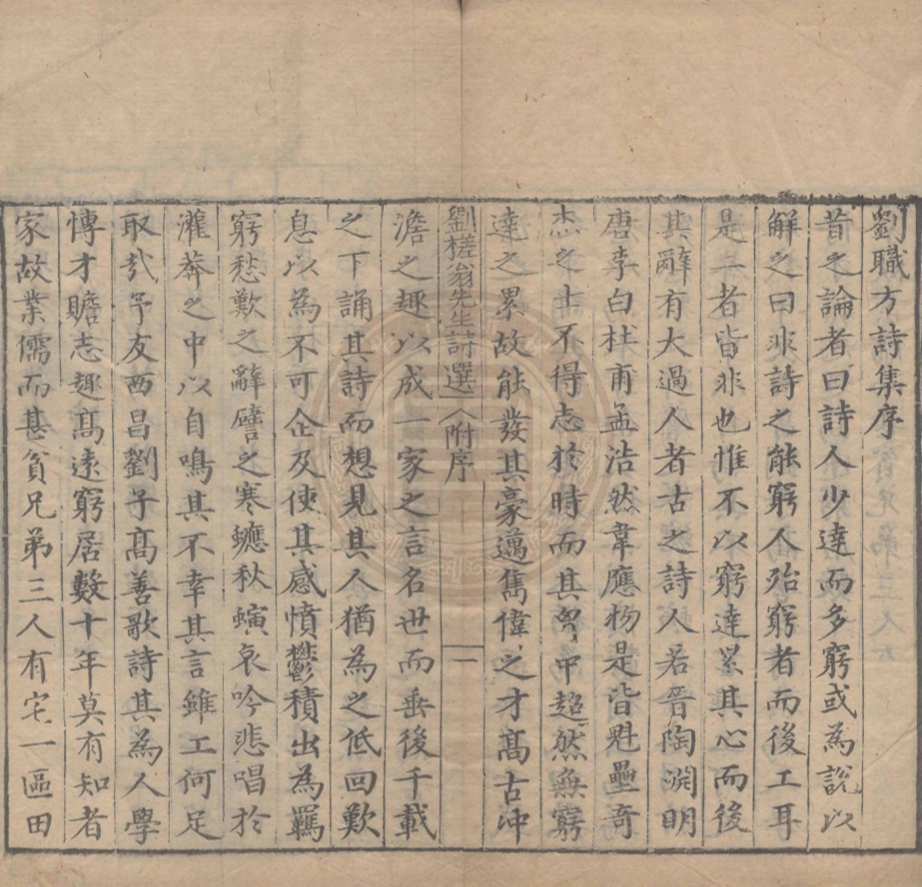 劉職方詩集序
昔之論者曰詩人少達而多窮或為說以
解之曰非詩之能窮人殆窮者而後工耳
是二者皆非也惟不以窮達累其心而後
其辭有大過人者古之詩人若晉陶淵明
唐李白杜甫孟浩然韋應物是皆魁壘奇
杰之士不得志於時而其胷中超然無窮
達之累故能發其豪邁雋偉之才高古沖
劉槎翁先生詩選 附序 一
澹之趣以成一家之言名世而垂後千載
之下誦其詩而想見其人猶為之低回歎
息以為不可企及使其感憤鬱積出為羈
窮愁歎之辭譬之寒蟪秋螾哀吟悲唱於
灌莽之中以自鳴其不幸其言雖工何足
取㢤予友西昌劉子高善歌詩其為人學
愽才贍志趣高遠窮居數十年莫有知者
家故業儒而甚貧兄弟三人有宅一區田